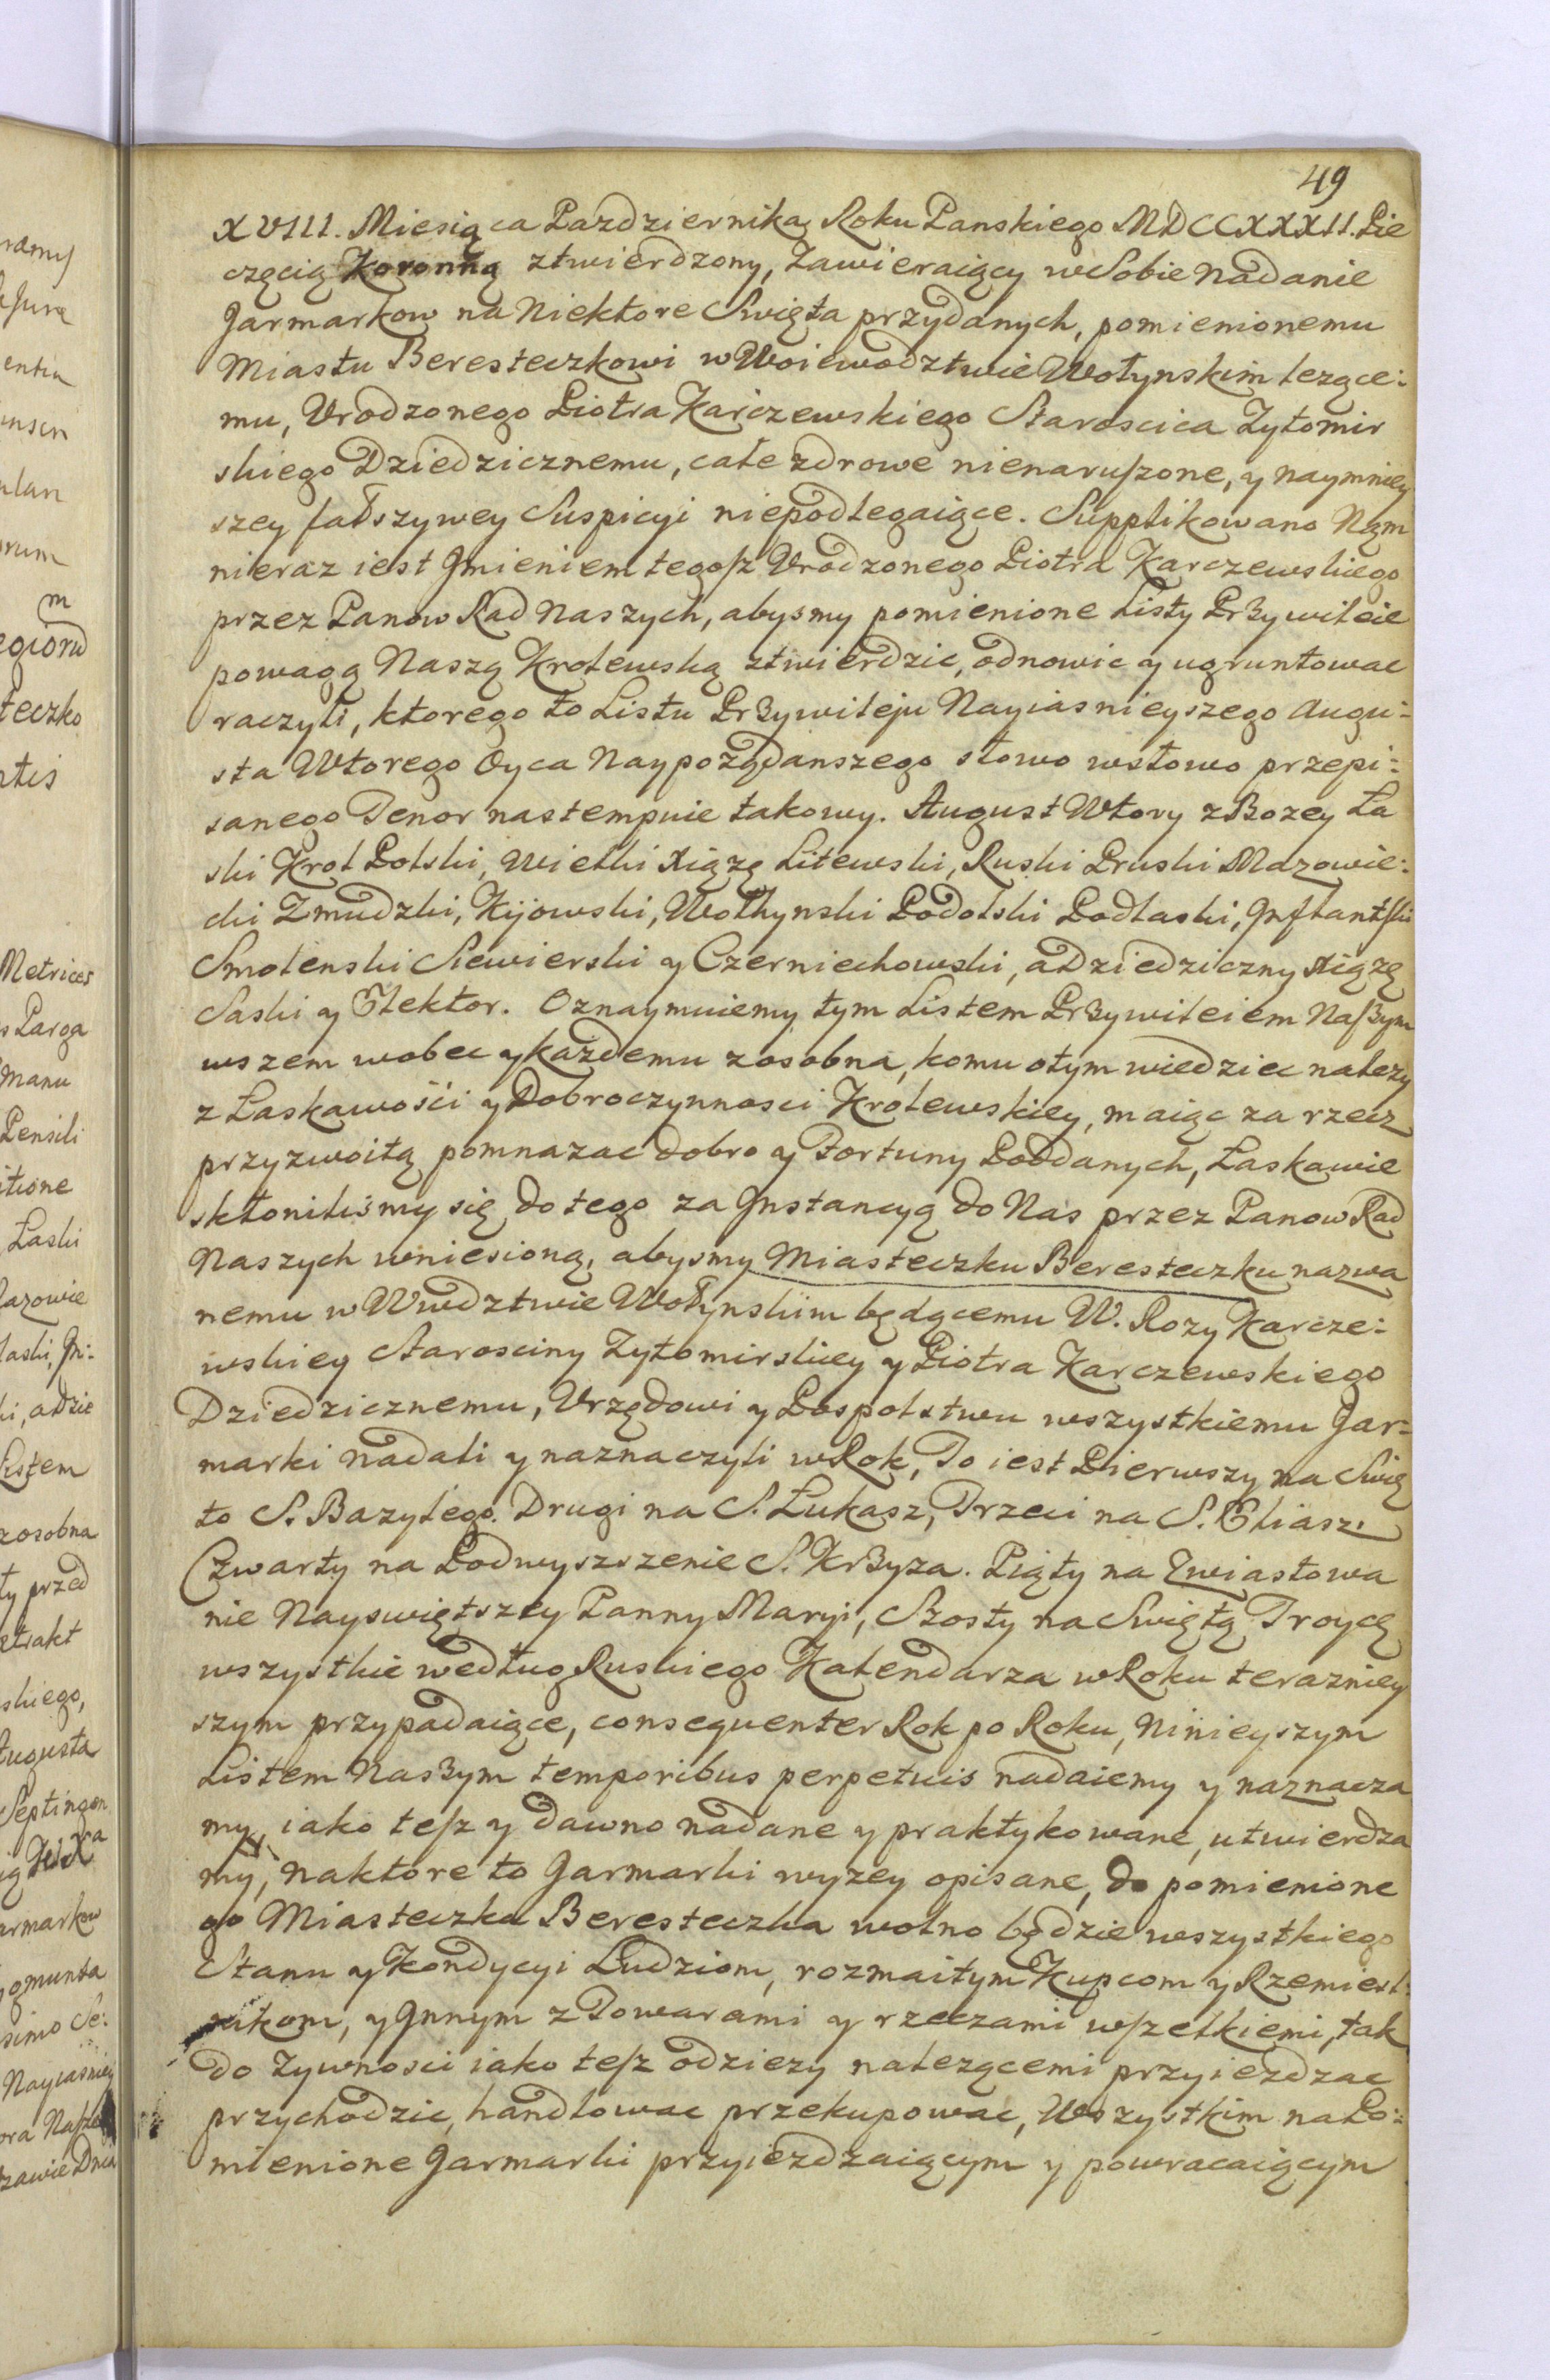 49
XVIII. Miesiąca Pazdziernika Roku Panskiego MDCCXXXII. Pie
częcią Koronną ztwierdzony, Zawieraiący w Sobie Nadanie
Jarmarkow na Niektore Swięta przydanych, pomienionemu
Miastu Beresteczkowi w Woiewodztwie Wołynskim lezące:
mu, Vrodzonego Piotra Karczewskiego Staroscica Zytomir
skiego Dziedzicznemu, cate zdrowe nienaruszone, y naymniey
szey fałszywey Suspicyi niepodlegaiące. Supplikowano Nąm
nieraz iest Jmieniem tegosz Vrodzonego Piotra Karczewskiego
przez Panow Rad Naszych, abysmy pomienione Listy Przywileie
powagą Naszą Krolewską ztwierdzic, odnowic y ugruntowac
raczyli, ktorego to Listu Przywileju Nayiasnieyszego Augu:
sta Wtorego Oyca Naypożądanszego słowo wsłowo przepi:
sanego Tenor nastempuie takowy. August Wtory z Bozey Ła
ski Krol Polski, Wielki Xiąże Litewski, Ruski Pruski Mazowie:
cki Zmudzki, Kijowski, Wołhynski Podolski Podlaski, Jnflantski
Smolenski Siewierski y Czerniechowski, a Dziedziczny Xiążę
Saski y Elektor. Oznaymuiemy tym Listem Przywileiem Naszym
wszem wobec y każdemu zosobna, komu otym wiedziec nalezy
z Łaskawości y Dobroczynnosci Krolewskiey, maiąc za rzecz
przyzwoitą pomnazac dobro y Fortuny Poddanych, Łaskawie
skłoniliśmy się do tego za Jnstancyą do Nas przez Panow Rad
Naszych wniesioną, abysmy Miasteczku Beresteczku nazwa
nemu w Wwdztwie Wołynskim będącemu W. Rozy Karcze:
wskiey Starosciny Zytomirskiey y Piotra Karczewskiego
Dziedzicznemu, Vrzędowi y Pospolstwu wszystkiemu Jar:
marki nadali y naznaczyli w Rok, To iest Pierwszy na Swię
to S. Bazylego. Drugi na S. Łukasz, Trzeci na S. Eliasz.
Czwarty na Podwyszszenie S. Krzyza. Piąty na Zwiastowa
nie Nayswiętszey Panny Maryi, Szosty na Swiętą Troycę
wszystkie według Ruskiego Kalendarza w Roku terazniey
szym przypadaiące, consequenter Rok po Roku, Ninieyszym
Listem Naszym temporibus perpetuis nadaiemy y naznacza
my, iako tesz y dawno nadane y praktykowane, utwierdza
my, naktore to Jarmarki wyzey opisane, do pomienione
go Miasteczka Beresteczka wolno będzie wszystkiego
Stanu y Kondycyi Ludziom, rozmaitym Kupcom y Rzemiesl:
nikom, y Jnnym z Towarami y rzeczami wszelkiemi, tak
do Zywnosci iako tesz odziezy nalezącemi przyiezdzac
przychodzic, handlowac przekupowac, Wszystkim na Po:
mienione Jarmarki przyiezdzaiącym y powracaiącym